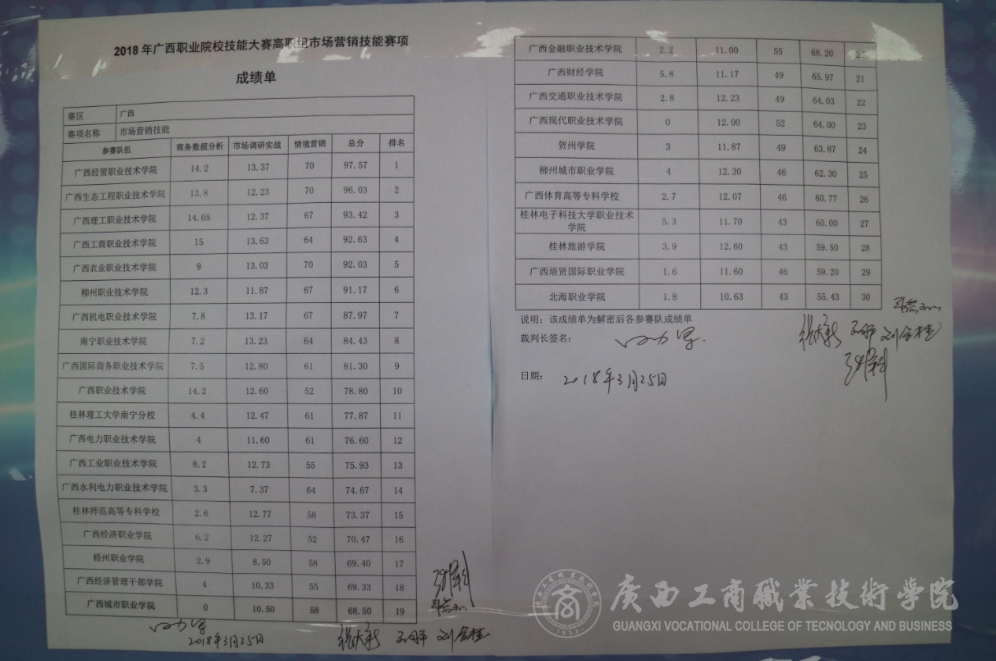 2018 年广西职业院校技能大赛高职组市场营销技能赛项
成绩单
赛区 广西
赛项名称 市场营销技能
参赛队伍 商务数据分析 市场调研实战 情境营销 总分 排名
广西经贸职业技术学院 14.2 13.37 70 97.57 1
广西生态工程职业技术学院 13.8 12.23 70 96.03 2
广西理工职业技术学院 14.05 12.37 67 93.42 3
广西工商职业技术学院 15 13.63 64 92.63 4
广西农业职业技术学院 9 13.03 70 92.03 5
柳州职业技术学院 12.3 11.87 67 91.17 6
广西机电职业技术学院 7.8 13.17 67 87.97 7
南宁职业技术学院 7.2 13.23 64 84.43 8
广西国际商务职业技术学院 7.5 12.80 61 81.30 9
广西职业技术学院 14.2 12.60 52 78.80 10
桂林理工大学南宁分校 4.4 12.47 61 77.87 11
广西电力职业技术学院 4 11.60 61 76.60 12
广西工业职业技术学院 8.2 12.73 55 75.93 13
广西水利电力职业技术学院 3.3 7.37 64 74.67 14
桂林师范高等专科学校 2.6 12.77 58 73.37 15
广西经济职业学院 6.2 12.27 52 70.47 16
梧州职业学院 2.9 8.50 58 69.40 17
广西经济管理干部学院 4 10.33 55 69.33 18
广西城市职业学院 0 10.50 58 68.50 19
2018年3月25日
广西金融职业技术学院 2.2 11.00 55 68.20 20
广西财经学院 5.8 11.17 49 65.97 21
广西交通职业技术学院 2.8 12.23 49 64.03 22
广西现代职业技术学院 0 12.00 52 64.00 23
贺州学院 3 11.87 49 63.87 24
柳州城市职业学院 4 12.30 46 62.30 25
广西体育高等专科学校 2.7 12.07 46 60.77 26
桂林电子科技大学职业技术
学院 5.3 11.70 43 60.00 27
桂林旅游学院 3.9 12.60 43 59.50 28
广西培贤国际职业学院 1.6 11.60 46 59.20 29
北海职业学院 1.8 10.63 43 55.43 30
说明：该成绩单为解密后各参赛队成绩单
裁判长签名：
日期： 2018年3月25日
廣西工商職業技術學院
GUANGXI VOCATIONAL COLLEGE OF TECNOLOGY AND BUSINESS